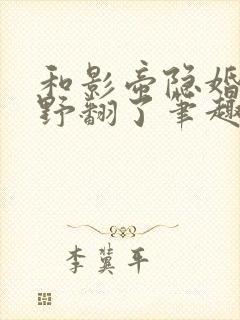 和影帝隐婚
野翻了笔趣
李冀平